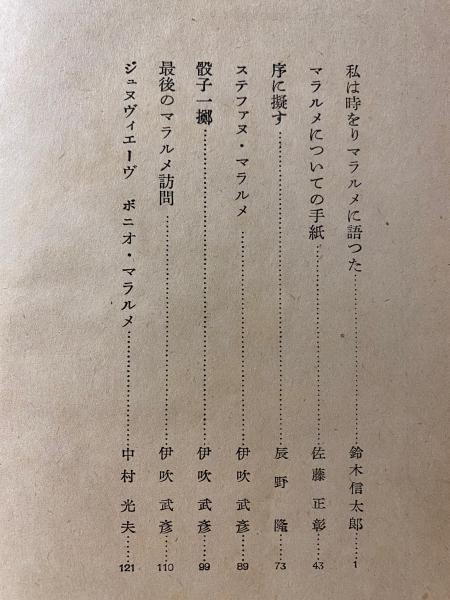 私は時をりマラルメに語つた……………鈴木信太郎……1
マラルメについての手紙……………佐藤正彰……43
序に擬す……………辰野隆……73
ステファヌ・マラルメ……………伊吹武彦……89
骰子一擲……………伊吹武彦……99
最後のマラルメ訪問……………伊吹武彦……110
ジュヌヴィエーヴ ボニオ・マラルメ……………中村光夫……121